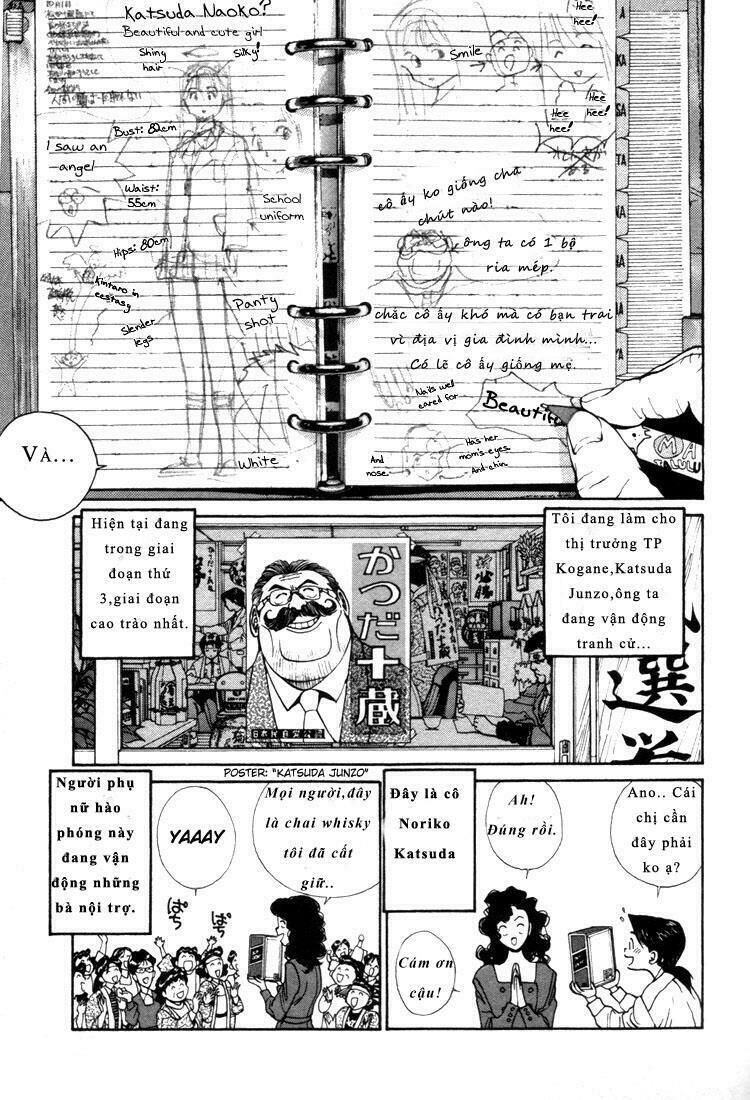 Katsuda Naoko?
Beautiful and cute girl
Shiny
hair
Silky!
Bust: 82cm
I saw an
angel
Waist:
55cm
School
uniform
Hips: 80cm
Kintaro in
ecstasy
Slender
legs
Panty
shot
White
Smile
Hee
hee!
Hee
hee!
Hee
hee!
A
KA
SA
TA
NA
cô ấy ko giống cha
chút nào!
ông ta có 1 bộ
ria mép.
chắc cô ấy khó mà có bạn trai
vì địa vị gia đình mình...
Có lẽ cô ấy giống mẹ.
Nails well
cared for
Beautiful
And
nose
Has her
mom's eyes
And chin
Và...
Hiện tại đang
trong giai
đoạn thứ
3,giai đoạn
cao trào nhất.
かつだ十蔵
Tôi đang làm cho
thị trưởng TP
Kogane,Katsuda
Junzo,ông ta
đang vận động
tranh cử...
選挙
POSTER: "KATSUDA JUNZO"
Người phụ
nữ hào
phóng này
đang vận
động những
bà nội trợ.
YAAAY
Mọi người,đây
là chai whisky
tôi đã cất
giữ..
ぱち
ぱち
Đây là cô
Noriko
Katsuda
Ah!
Đúng rồi.
Ano.. Cái
chị cần
đây phải
ko ạ?
Cám ơn
cậu!